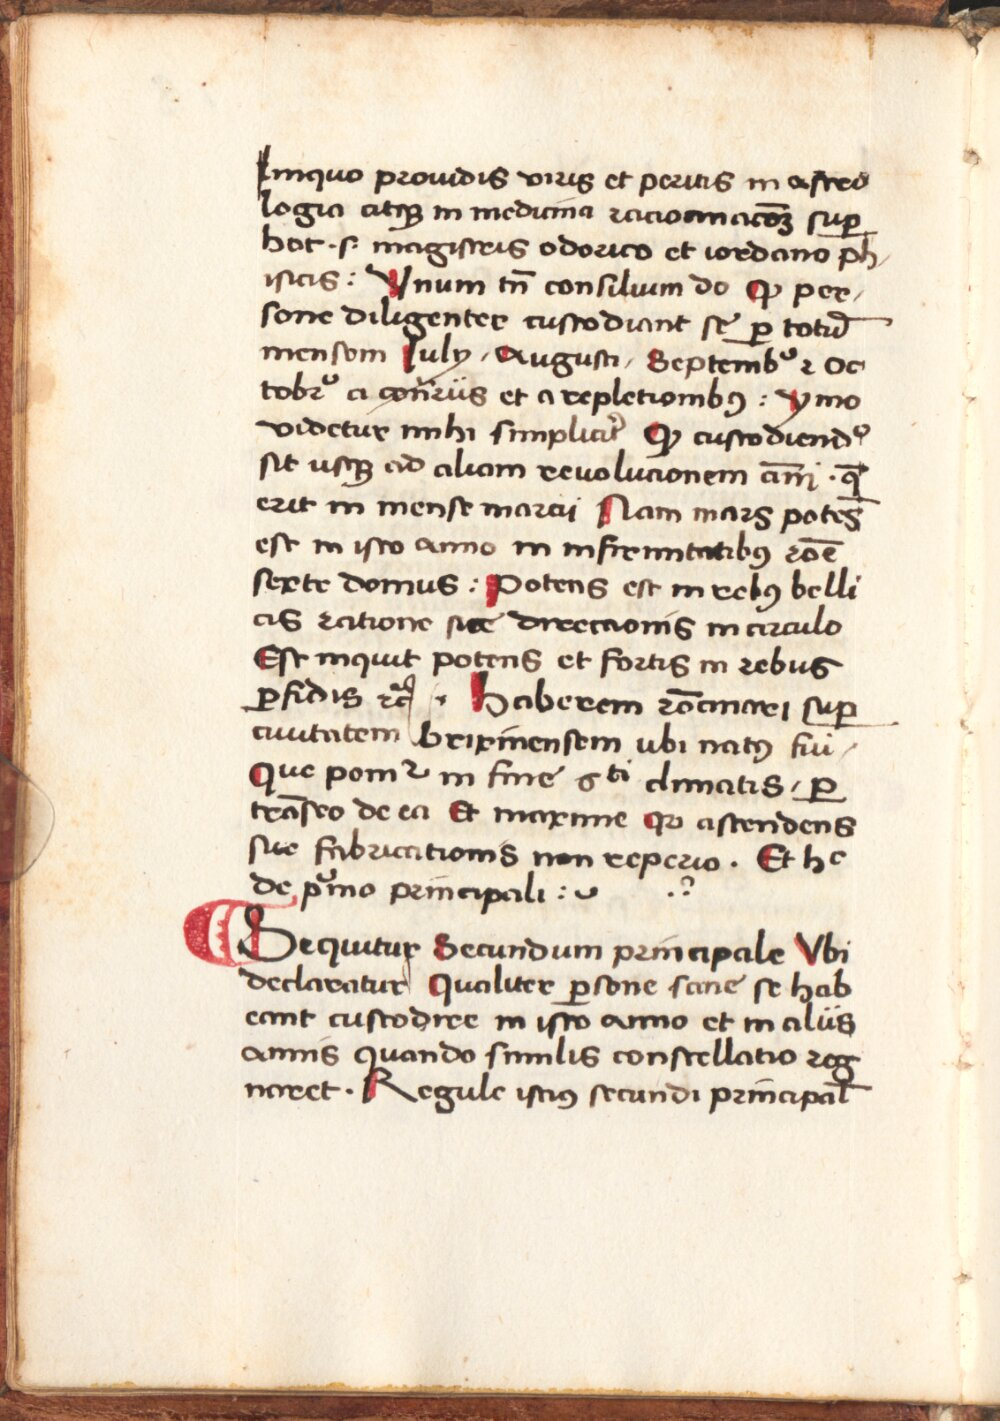 linquo prouidis viris et peritis in astro
logia atqꝫ in medicina racioci͞nac͞oꝫ suꝑ
hoc · s· magistris odorico et iordano ph/
isicis : Vnum tn̄ consilium do ꝙ per/
sone diligenter custodiant se ꝑ totū
mensem July / Augusti / Septembꝰ ⁊ Oc
tobrꝰ a et a repletionibꝰ : ymo
videtur mihi simplicit͛ ꝙ custodiendꝰ
sit usqꝫ ad aliam reuolucionem an̄i · q̄
erit in mense marcii Nam mars potēs
est in isto anno in infirmitatibꝰ rōe
sexte domus : Potens est in rebꝰ belli
cis ratione sue direccionis in circulo
Est inquit potens et fortis in rebus
ꝑfidis ⁊c̄ · haberem rōcinari suꝑ
ciuitatem brixinensem ubi natꝰ fui /
Que ponit᷑ in fine 6ti climatis / ꝑ
trāseo de ea Et maxime ꝙ ascendens
sue fabricationis non reperio · Et hec
de pͥmo principali :
Sequitur Secundum principale Vbi
declaratur Qualiter ꝑsone sane se hab
eant custodire in isto anno et in aliis
annis quando similis constellatio reg
naret · Regule istiꝰ secundi principal̄